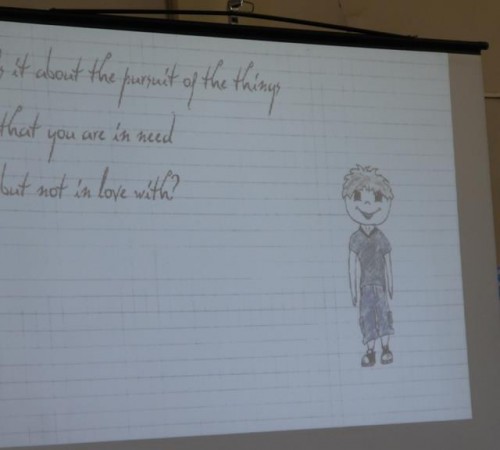 s it about the pursuit of the things
that you are in need
but not in love with?